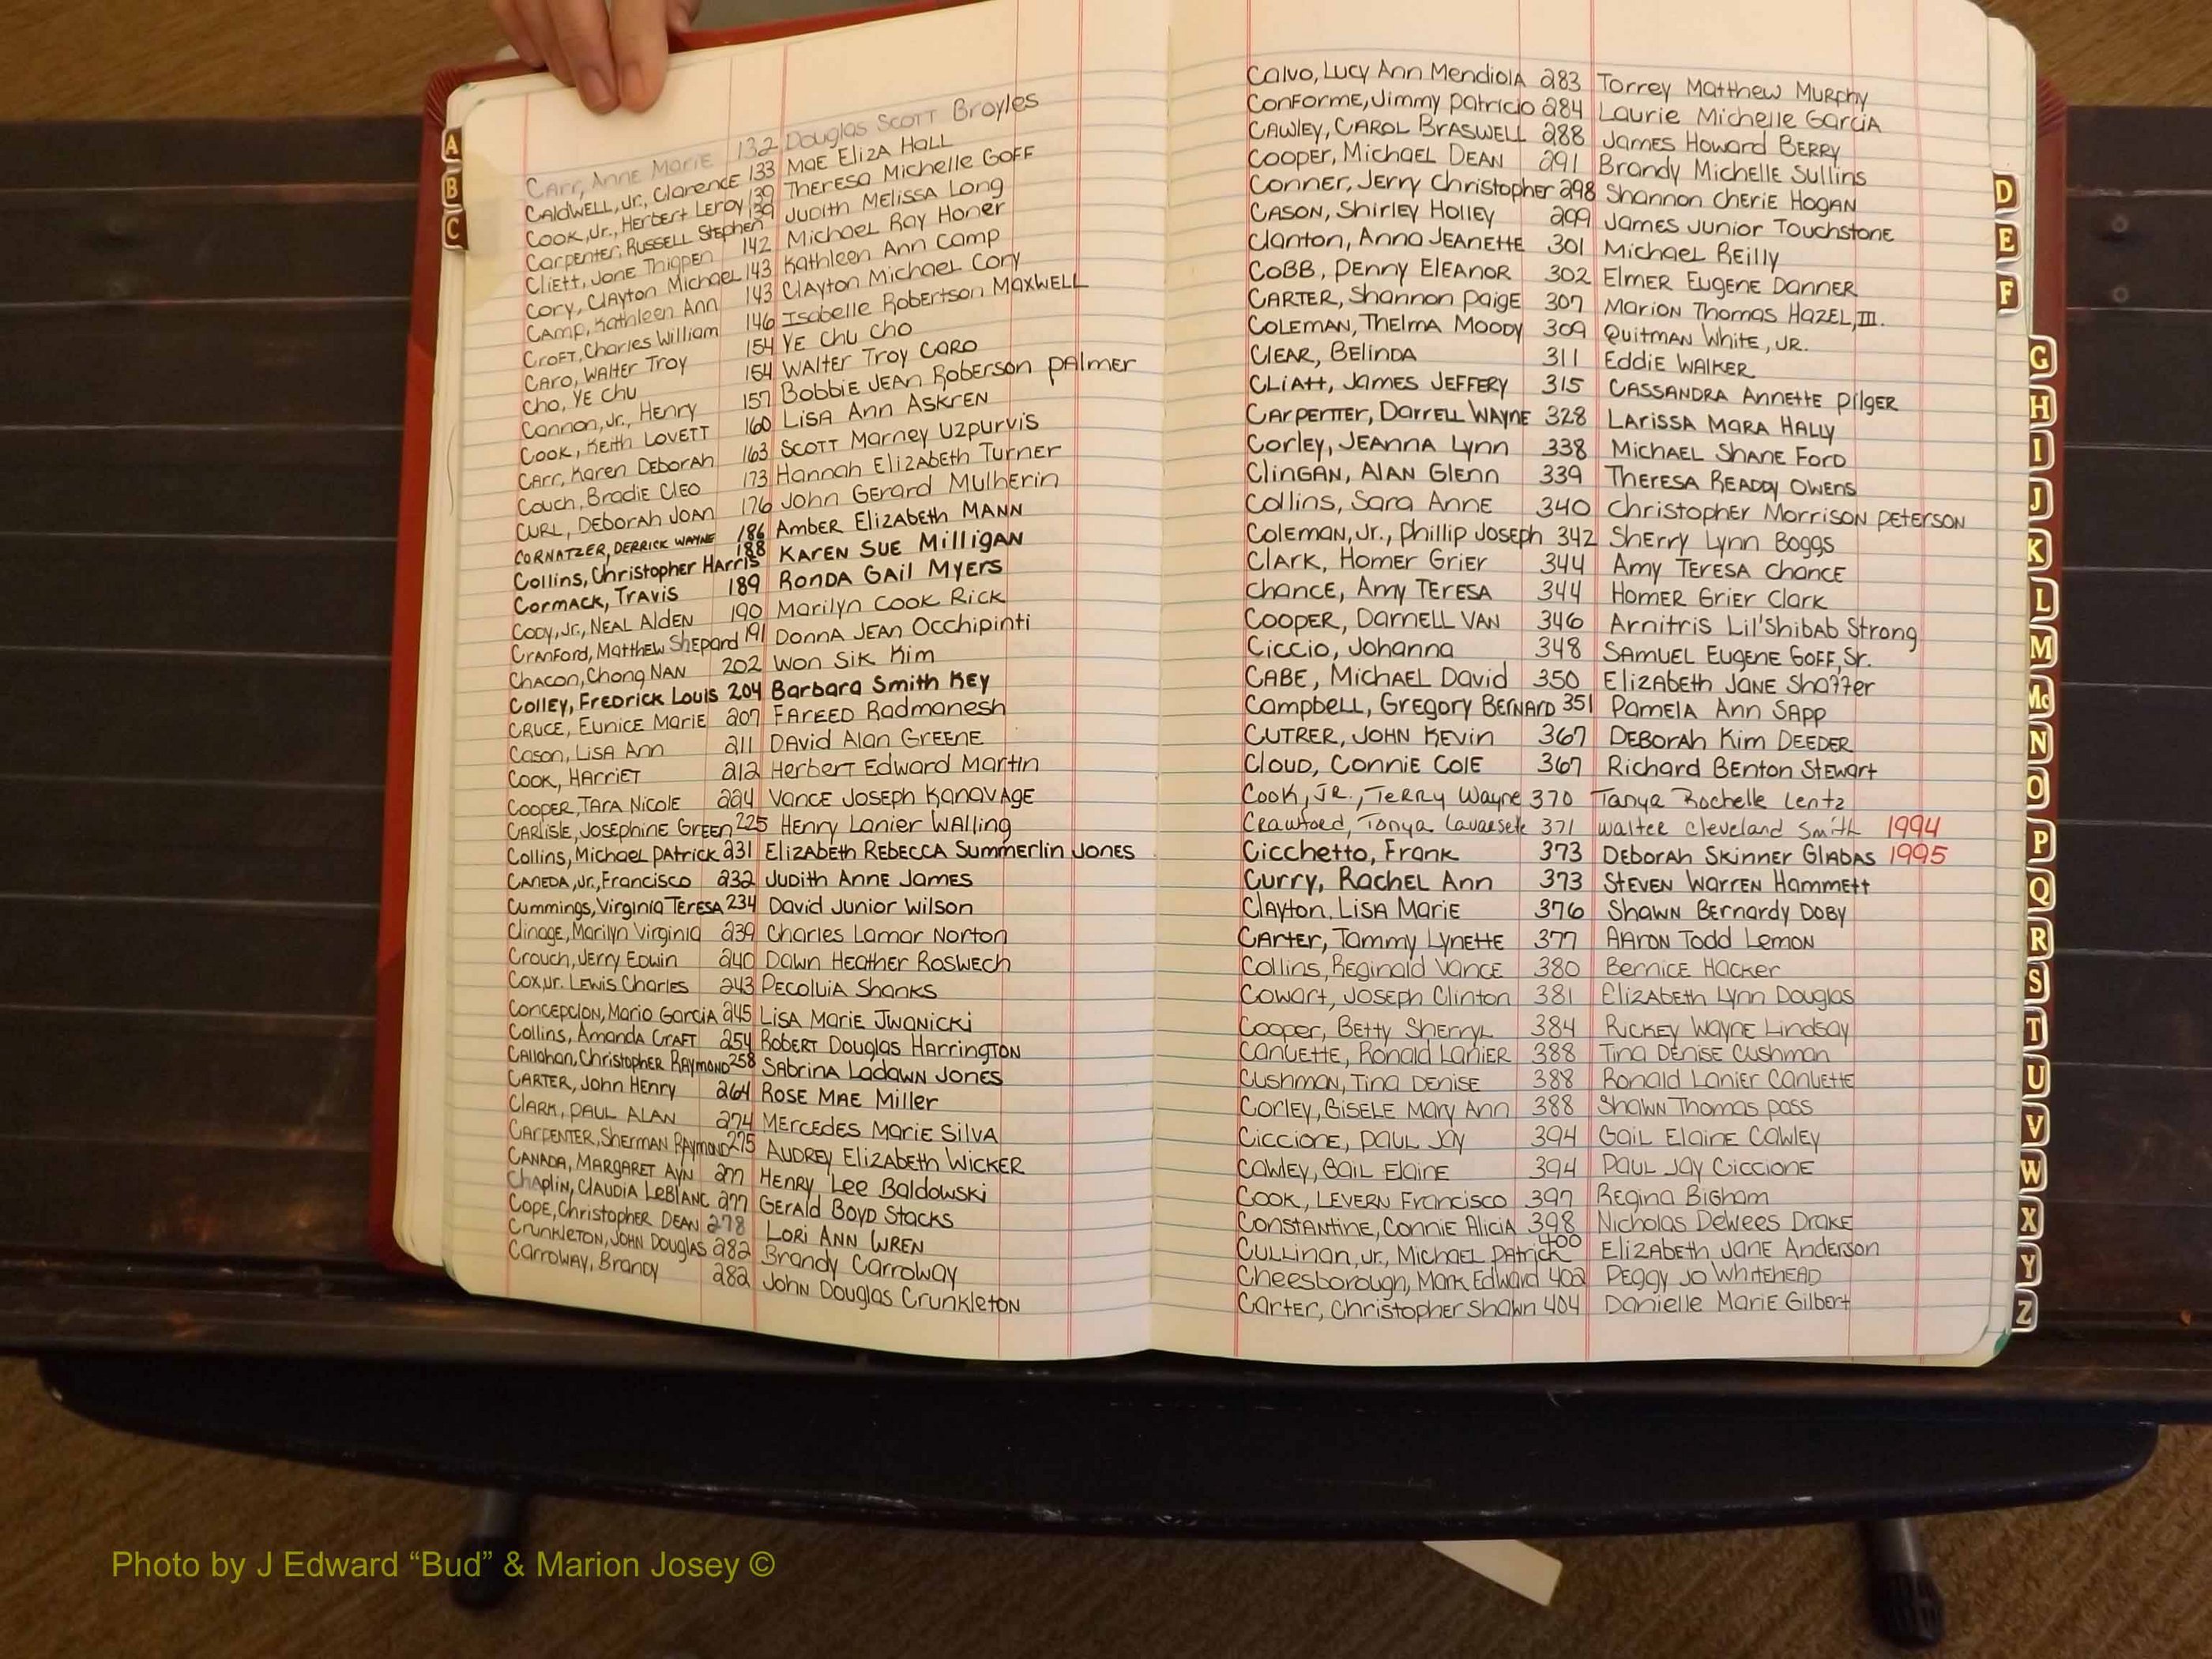 A
B
C
Carr, Anne Marie 132 Douglas Scott Broyles
Caldwell, Jr., Clarence 133 Mae Eliza Hall
Cook, Jr., Herbert Leroy 139 Theresa Michelle Goff
Carpenter, Russell Stephen 139 Judith Melissa Long
Cliett, Jane Thigpen 142 Michael Ray Honer
Cory, Clayton Michael 143 Kathleen Ann Camp
Camp, Kathleen Ann 143 Clayton Michael Cory
Croft, Charles William 146 Isabelle Robertson Maxwell
Caro, Walter Troy 154 Ye Chu Cho
Cho, Ye Chu 154 Walter Troy Caro
Cannon, Jr., Henry 157 Bobbie Jean Roberson Palmer
Cook, Keith Lovett 160 Lisa Ann Askren
Carr, Karen Deborah 163 Scott Marney Uzpurvis
Couch, Bradie Cleo 173 Hannah Elizabeth Turner
Curl, Deborah Joan 176 John Gerard Mulherin
Cornatzer, Derrick Wayne 186 Amber Elizabeth Mann
Collins, Christopher Harris 188 Karen Sue Milligan
Cormack, Travis 189 Ronda Gail Myers
Cody, Jr., Neal Alden 190 Marilyn Cook Rick
Cranford, Matthew Shepard 191 Donna Jean Occhipinti
Chacon, Chong Nan 202 Won Sik Kim
Colley, Fredrick Louis 204 Barbara Smith Key
Cruce, Eunice Marie 207 Fareed Radmanesh
Cason, Lisa Ann 211 David Alan Greene
Cook, Harriet 212 Herbert Edward Martin
Cooper, Tara Nicole 224 Vance Joseph Kanavage
Carlisle, Josephine Green 225 Henry Lanier Walling
Collins, Michael Patrick 231 Elizabeth Rebecca Summerlin Jones
Caneda, Jr., Francisco 232 Judith Anne James
Cummings, Virginia Teresa 234 David Junior Wilson
Clinage, Marilyn Virginia 239 Charles Lamar Norton
Crouch, Jerry Edwin 240 Dawn Heather Roswech
Cox, Jr. Lewis Charles 243 Pecoluia Shanks
Concepcion, Mario Garcia 245 Lisa Marie Jwanicki
Collins, Amanda Craft 254 Robert Douglas Harrington
Callahan, Christopher Raymond 258 Sabrina Ladawn Jones
Carter, John Henry 264 Rose Mae Miller
Clark, Paul Alan 274 Mercedes Marie Silva
Carpenter, Sherman Raymond 275 Audrey Elizabeth Wicker
Canada, Margaret Ayn 277 Henry Lee Baldowski
Chaplin, Claudia LeBlanc 277 Gerald Boyd Stacks
Cope, Christopher Dean 278 Lori Ann Wren
Crunkleton, John Douglas 282 Brandy Carroway
Carroway, Brandy 282 John Douglas Crunkleton
Calvo, Lucy Ann Mendiola 283 Torrey Matthew Murphy
Conforme, Jimmy Patricio 284 Laurie Michelle Garcia
Cawley, Carol Braswell 288 James Howard Berry
Cooper, Michael Dean 291 Brandy Michelle Sullins
Conner, Jerry Christopher 298 Shannon Cherie Hogan
Cason, Shirley Holley 299 James Junior Touchstone
Clanton, Anna Jeanette 301 Michael Reilly
Cobb, Penny Eleanor 302 Elmer Eugene Danner
Carter, Shannon Paige 307 Marion Thomas Hazel, III.
Coleman, Thelma Moody 309 Quitman White, Jr.
Clear, Belinda 311 Eddie Walker
Cliatt, James Jeffery 315 Cassandra Annette Pilger
Carpentter, Darrell Wayne 328 Larissa Mara Hally
Corley, Jeanna Lynn 338 Michael Shane Ford
Clingan, Alan Glenn 339 Theresa Readdy Owens
Collins, Sara Anne 340 Christopher Morrison Peterson
Coleman, Jr., Phillip Joseph 342 Sherry Lynn Boggs
Clark, Homer Grier 344 Amy Teresa Chance
Chance, Amy Teresa 344 Homer Grier Clark
Cooper, Darnell Van 346 Arnitris Lil'Shibab Strong
Ciccio, Johanna 348 Samuel Eugene Goff, Sr.
Cabe, Michael David 350 Elizabeth Jane Shaffer
Campbell, Gregory Bernard 351 Pamela Ann Sapp
Cutrer, John Kevin 367 Deborah Kim Deeder
Cloud, Connie Cole 367 Richard Benton Stewart
Cook, Jr., Terry Wayne 370 Tanya Rochelle Lentz
Crawford, Tonya 371 Walter Cleveland Smith 1994
Cicchetto, Frank 373 Deborah Skinner Glabas 1995
Curry, Rachel Ann 373 Steven Warren Hammett
Clayton, Lisa Marie 376 Shawn Bernardy Doby
Carter, Tammy Lynette 377 Aaron Todd Lemon
Collins, Reginald Vance 380 Bernice Hacker
Cowart, Joseph Clinton 381 Elizabeth Lynn Douglas
Cooper, Betty Sherryl 384 Rickey Wayne Lindsay
Canuette, Ronald Lanier 388 Tina Denise Cushman
Cushman, Tina Denise 388 Ronald Lanier Canuette
Corley, Gisele Mary Ann 388 Shawn Thomas Poss
Ciccione, Paul Jay 394 Gail Elaine Cawley
Cawley, Gail Elaine 394 Paul Jay Ciccione
Cook, Levern Francisco 397 Regina Bigham
Constantine, Connie Alicia 398 Nicholas Dewees Drake
Cullinan, Jr., Michael Patrick 400 Elizabeth Jane Anderson
Cheesborough, Mark Edward 402 Peggy Jo Whitehead
Carter, Christopher Shawn 404 Danielle Marie Gilbert
D
E
F
G
H
I
J
K
L
M
Mc
N
O
P
Q
R
S
T
U
V
W
X
Y
Z
Photo by J Edward “Bud” & Marion Josey ©